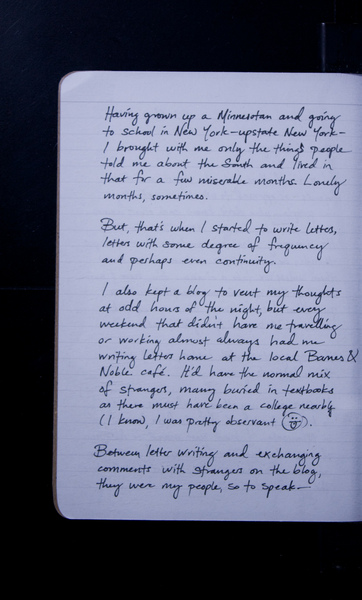 Having grown up a Minnesotan and going
to school in New York—upstate New York—
I brought with me only the things people
told me about the South and lived in
that for a few miserable months. Lonely
months, sometimes.
But, that's when I started to write letters,
letters with some degree of frequency
and perhaps even continuity.
I also kept a blog to vent my thoughts
at odd hours of the night, but every
weekend that didn't have me travelling
or working almost always had me
writing letters home at the local Barnes &
Noble café. It'd have the normal mix
of strangers, many buried in textbooks
as there must have been a college nearby
(I know, I was pretty observant ).
Between letter writing and exchanging
comments with strangers on the blog,
they were my people, so to speak—